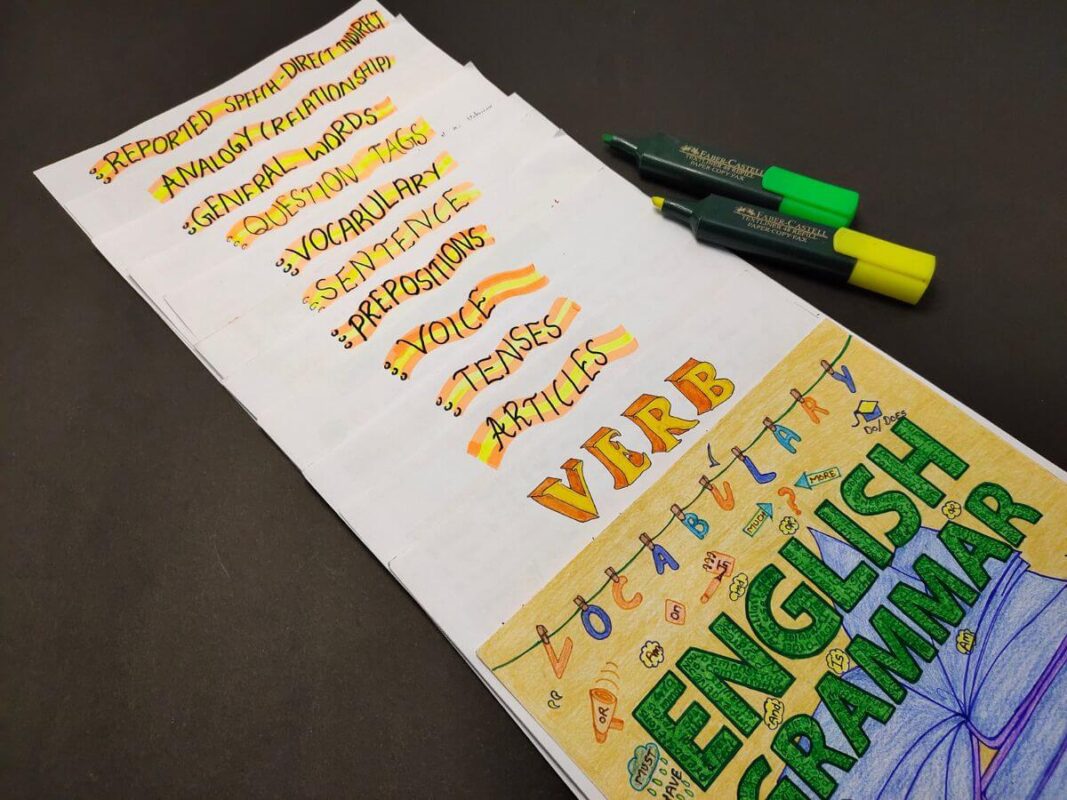 REPORTED SPEECH - DIRECT INDIRECT
ANALOGY (RELATIONSHIP)
GENERAL WORDS
QUESTION TAGS
VOCARULARY
SENTENCE
PREPOSITIONS
VOICE
TENSES
ARTICLES
VERB
FABER-CASTELL
TEXTLINER 48 REFILL
PAPER COPY FAX
FABER-CASTELL
TEXTLINER 48 REFILL
PAPER-COPY-FAX
VOCABULARY
DO/DOES
MORE
?
MUCH
OR
OR
In
On
And
Am
ENGLISH
GRAMMAR
Is
Am
And
OR
MUST
HAVE